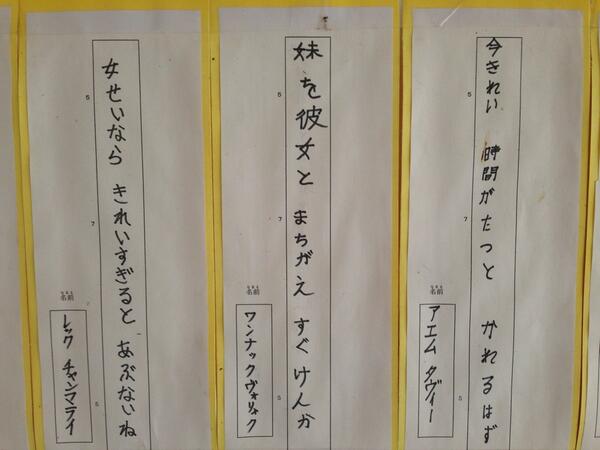 今きれい 時間がたつと かれるはず
5
7
5
名前
なまえ
アエム タヴィー
妹を彼女と まちがえ すぐけんか
5
7
5
名前
なまえ
ワンナックヴォリャク
女せいなら きれいすぎると あぶないね
5
7
5
名前
なまえ
レック チャンマライ